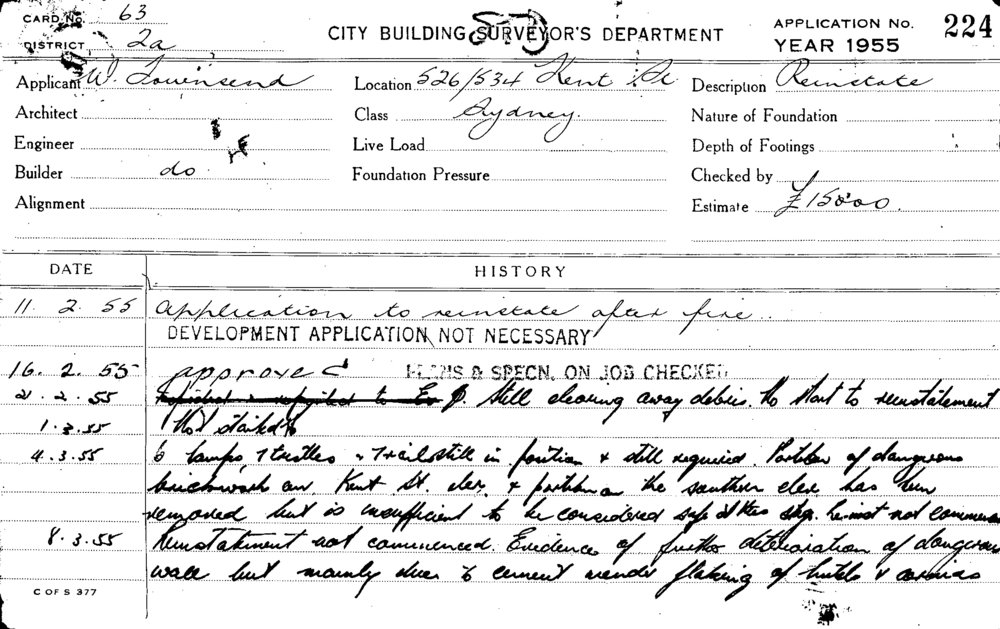 CARD No. 63
DISTRICT 2a
CITY BUILDING SURVEYOR'S DEPARTMENT
APPLICATION No. 224
YEAR 1955
Applicant W. Townsend Location 526/534 Kent St Description Reinstate
Architect Class Sydney. Nature of Foundation
Engineer Live Load Depth of Footings
Builder do Foundation Pressure Checked by
Alignment Estimate £15000.
DATE HISTORY
11. 2. 55 Application to reinstate after fire.
DEVELOPMENT APPLICATION NOT NECESSARY
16. 2. 55 approved PLANS & SPECN. ON JOB CHECKED
21. 2. 55 Still clearing away debris. No start to reinstatement
1.3.55 Not started
4.3.55 6 lamps 7 trestles & 7 rails still in position & still required. Portion of dangerous
brickwork on Kent St. elev. & portion on the southern elev has been
removed but is insufficient to be considered safe at this stage. not commenced
8.3.55 Reinstatement not commenced. Evidence of further deterioration of dangerous
wall but mainly due to cement render flaking of lintels & cornices
C OF S 377